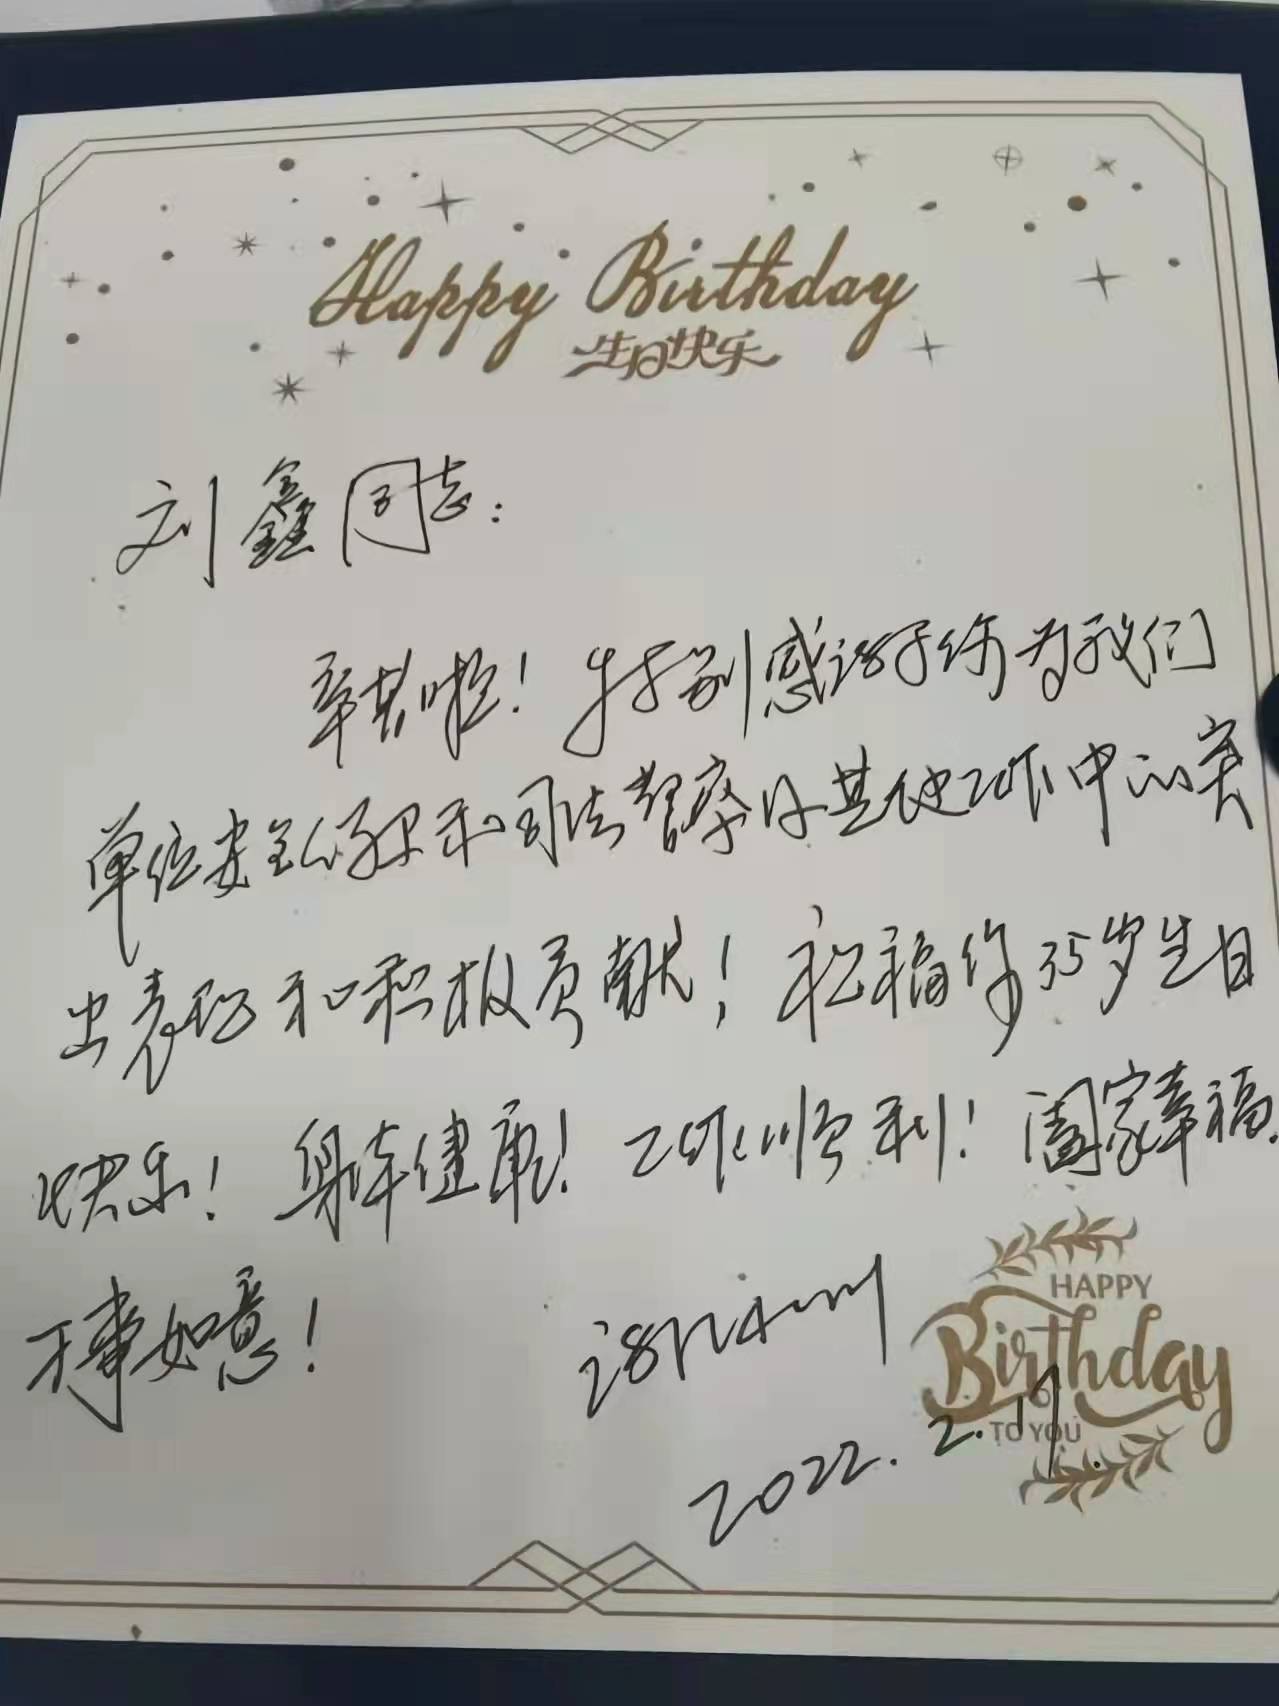 Happy Birthday
生日快乐
刘鑫同志：
辛苦啦！特别感谢你为我们
单位安全保卫和司法警察及其他工作中的突
出表现和积极贡献！祝福你35岁生日
快乐！身体健康！工作顺利！阖家幸福、
万事如意！
HAPPY
Birthday
TO YOU
2022.2.17.